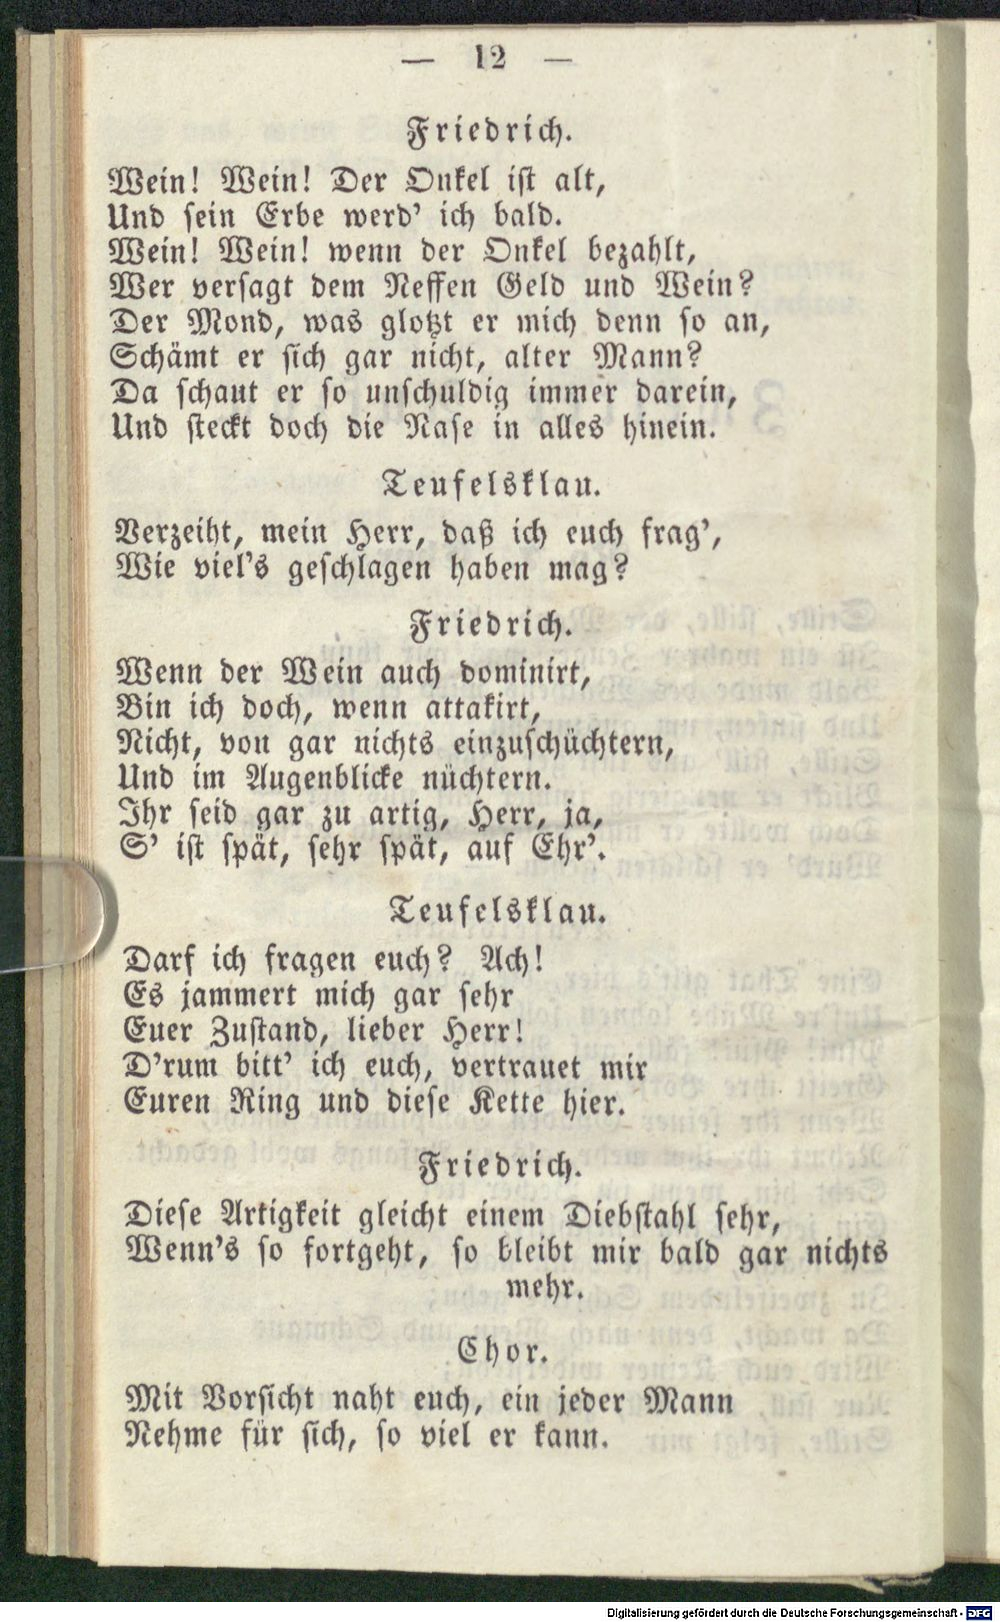 — 12 —
Friedrich.
Wein! Wein! Der Onkel ist alt,
Und sein Erbe werd' ich bald.
Wein! Wein! wenn der Onkel bezahlt,
Wer versagt dem Neffen Geld und Wein?
Der Mond, was glotzt er mich denn so an,
Schämt er sich gar nicht, alter Mann?
Da schaut er so unschuldig immer darein,
Und steckt doch die Nase in alles hinein.
Teufelsklau.
Verzeiht, mein Herr, daß ich euch frag',
Wie viel's geschlagen haben mag?
Friedrich.
Wenn der Wein auch dominirt,
Bin ich doch, wenn attakirt,
Nicht, von gar nichts einzuschüchtern,
Und im Augenblicke nüchtern.
Ihr seid gar zu artig, Herr, ja,
S' ist spät, sehr spät, auf Ehr'.
Teufelsklau.
Darf ich fragen euch? Ach!
Es jammert mich gar sehr
Euer Zustand, lieber Herr!
D'rum bitt' ich euch, vertrauet mir
Euren Ring und diese Kette hier.
Friedrich.
Diese Artigkeit gleicht einem Diebstahl sehr,
Wenn's so fortgeht, so bleibt mir bald gar nichts
mehr.
Chor.
Mit Vorsicht naht euch, ein jeder Mann
Nehme für sich, so viel er kann.
Digitalisierung gefördert durch die Deutsche Forschungsgemeinschaft - DFG